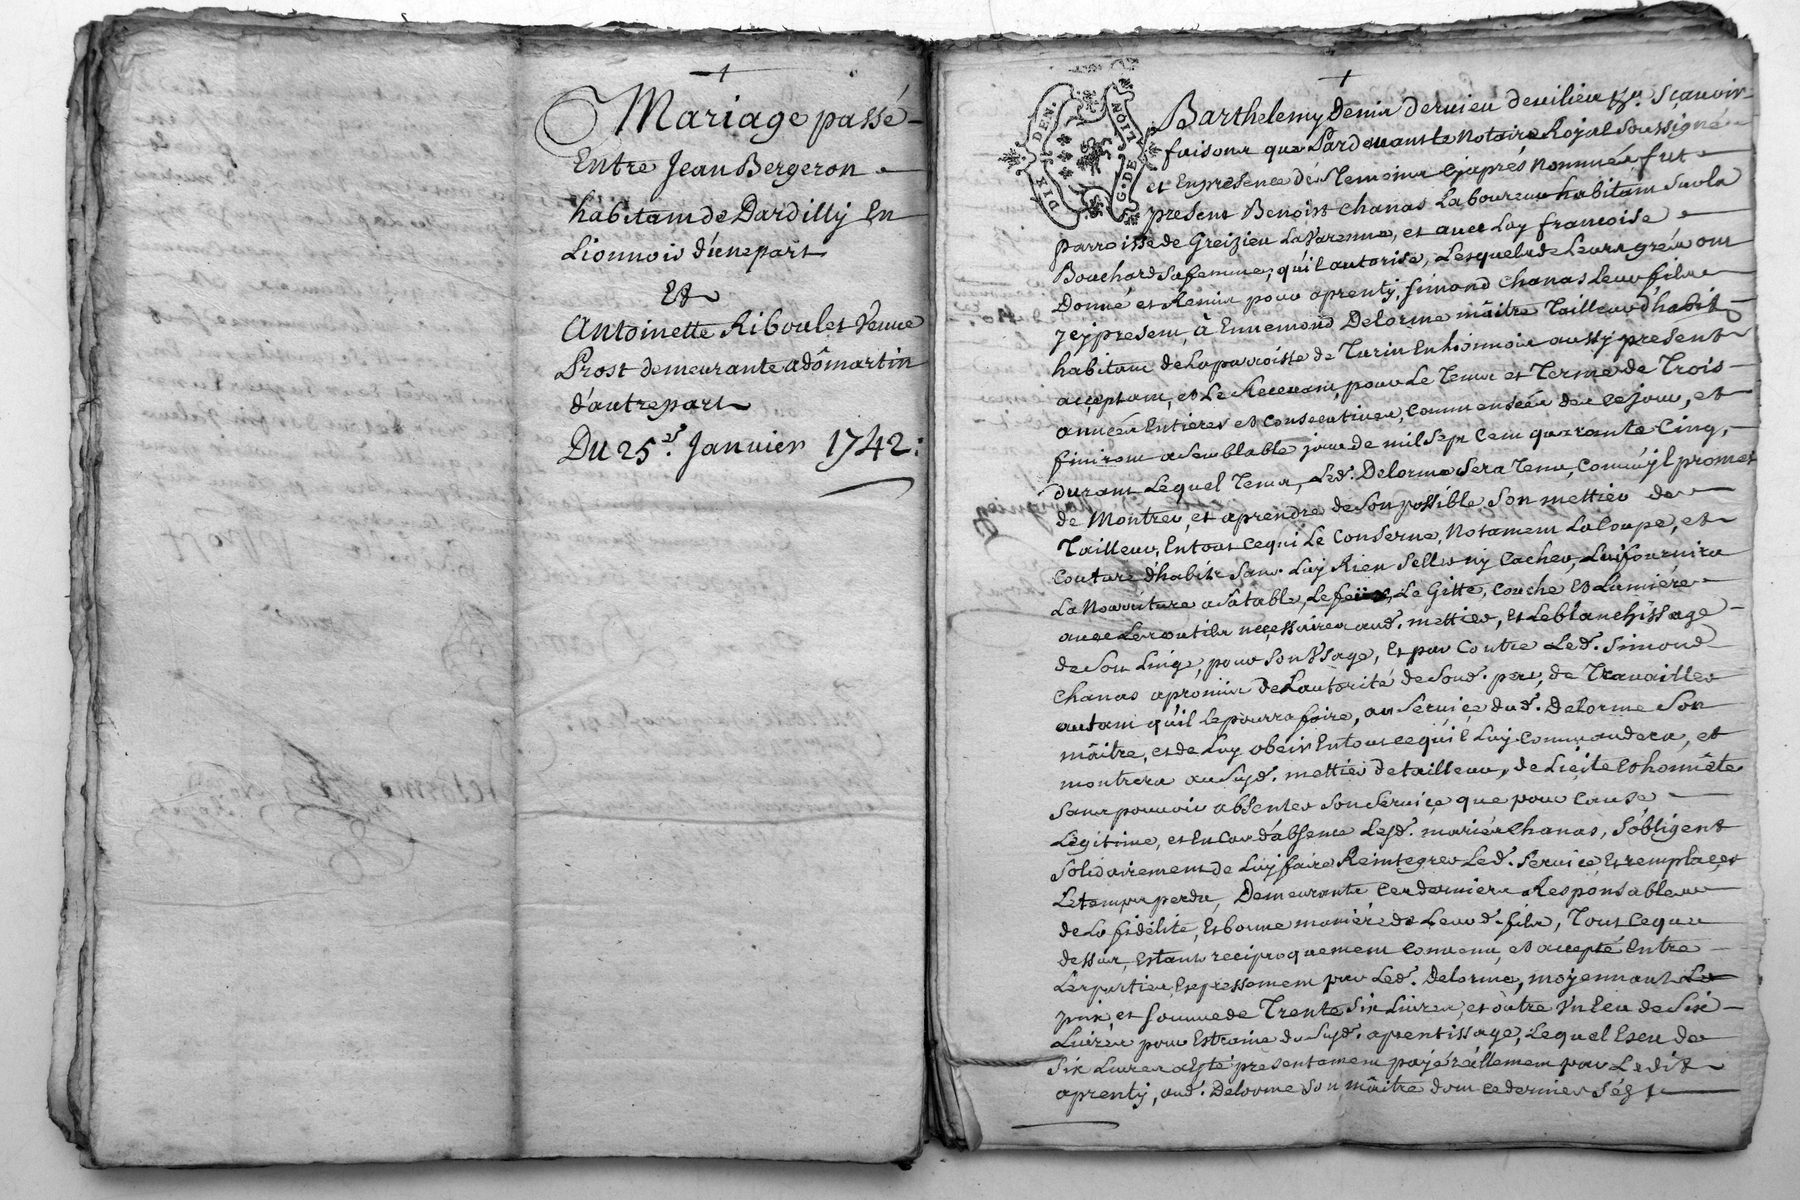 Mariage passé
Entre Jean Bergeron
habitant de Dardilly En
Lionnois d'une part
Et
Antoinette Riboulet Veuve
Prost demeurante a dômartin
d'autre part
Du 25e. Janvier 1742:
DIX DEN.
G. DE LION
Barthelemy Denis dervieu devilieu Sçavoir
faisons que Pardevant le Notaire Royal Soussigné
et En presence des Temoins Cy aprés Nommés fut
present Benoist Chanas Laboureur habitant Sur la
parroisse de Greizieu La Varenne, et avec Luy francoise
Bouchard Sa femme, qu'il autorise, Lesquels de Leurs grés ont
Donné et Remis pour aprenty, Simond Chanas Leur fils
Icy present, à Ennemond Delorme maître Tailleur d'habit
habitant de La parroisse de Turin En Lionnois aussy present
acceptant, et Le Recevant, pour Le Tems et Terme de Trois
années Entieres et Consecutives, Commensées de ce jour, et
finiront a Semblable jour de mil Sept Cent quarante Cinq,
durant Lequel Tems, Led. Delorme Sera Tenu, Comme il promet
de Montrer, et aprendre de Son possible Son mettier de
Tailleur, En tout ce qui Le Conserne, Notament La Coupe, et
Couture d'habits Sans Luy Rien Seller ny Cacher, Luy fournira
La Nourriture a Sa table, Le feu, Le Gitte, Couche Et Lumiére
avec Les outils necessaires aud. mettier, et Le blanchissage
de Son Linge, pour Son Usage, Et par Contre Led. Simond
Chanas a promis de L'autorité de Sond. pere, de Travailler
autant qu'il Le pourra faire, au Service dud. Delorme Son
maître, et de Luy obeir En tout ce qu'il Luy Commandera, et
montrera au Sujd. mettier de tailleur, de Licite Et honnête
Sans pouvoir absenter Son Service que pour Cause
Legitime, et En Cas d'absence Lesd. mariés Chanas, S'obligent
Solidairement de Luy faire Reintegrer Led. Service Et remplacer
Le tems perdu, Demeurants Ces derniers Responsables
de La fidélité, Et bonne maniére de Leur d. fils, Tout ce que
dessus, Estant reciproquement Convenu, et accepté Entre
Les parties, Expressement par Led. Delorme, moyennant Le
prix, et Somme de Trente Six Livres, et outre Un Ecu de Six
Livres pour Estraine du Sujd. aprentissage, Lequel Ecu de
Six Livres a Esté presentement payé réellement par Le dit
aprenty, aud. Delorme Son maître dont ce dernier S'est